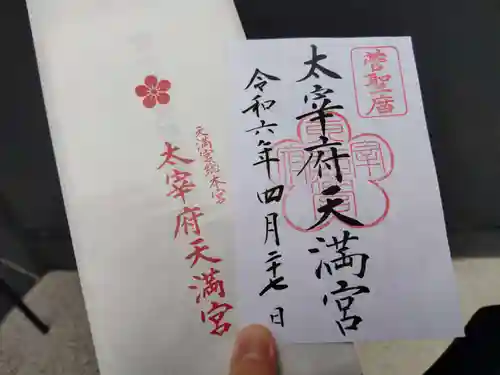 菅聖廟
太宰府天満宮
令和六年四月二十七日
天満宮総本宮
太宰府天満宮